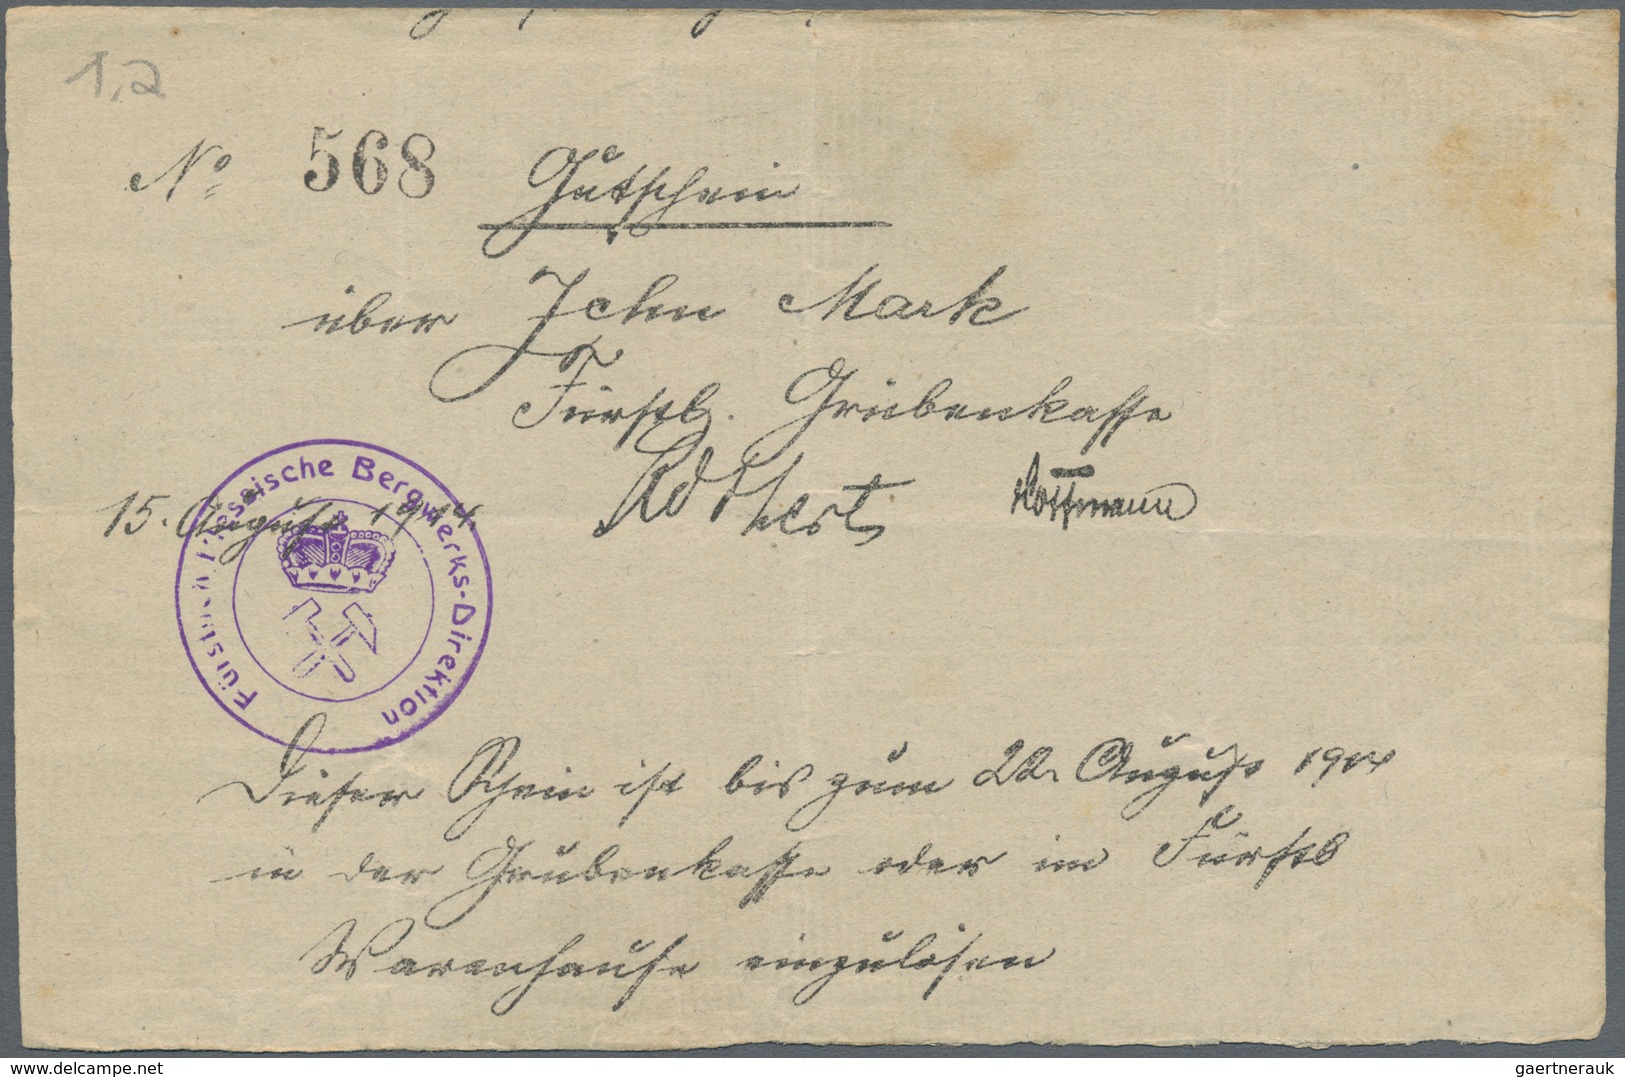 1,2
No 568 Gutschein
über Zehn Mark
Fürstl. Grubenkasse
15. August 1914. Hoffmann
Fürstlich Plessische Bergwerks-Direktion
Dieser Schein ist bis zum 22. August 1914
in der Grubenkasse oder im Fürstl
Warenhause einzulösen
www.delcampe.net
gaertnerauk